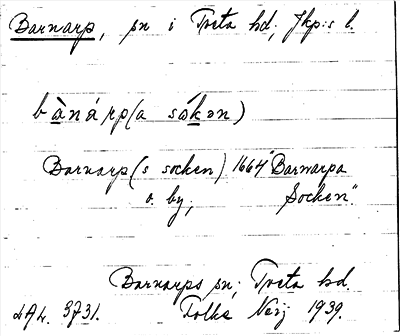 Barnarp, sn i Tveta hd, Jkp:s l.
bànárp(a sókən)
Barnarp(s socken) 1664 "Barnarpa
o. by; Socken".
Barnarps sn; Tveta hd.
LAL. 3731. Folke Nerj 1939.